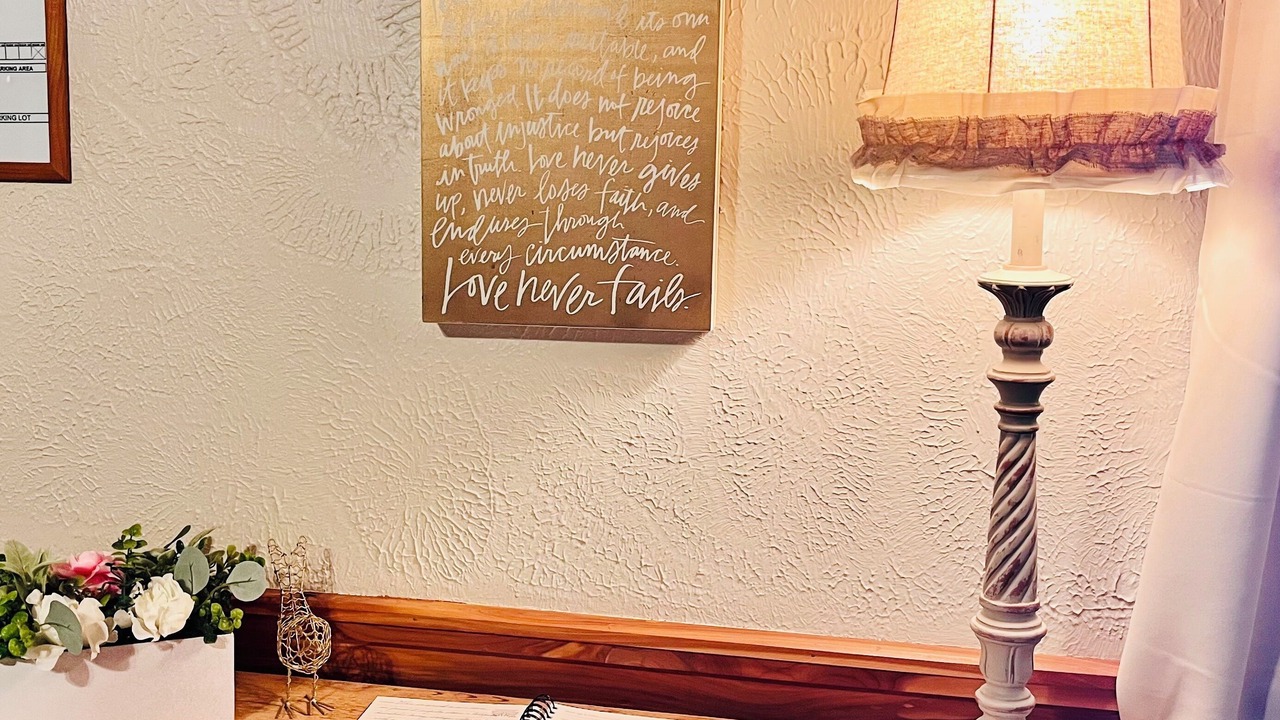 RKING AREA
RKING LOT
its own
and
it keeps no record of being
wronged. It does not rejoice
about injustice but rejoices
in truth. Love never gives
up, never loses faith, and
endures through
every circumstance.
Love never fails.